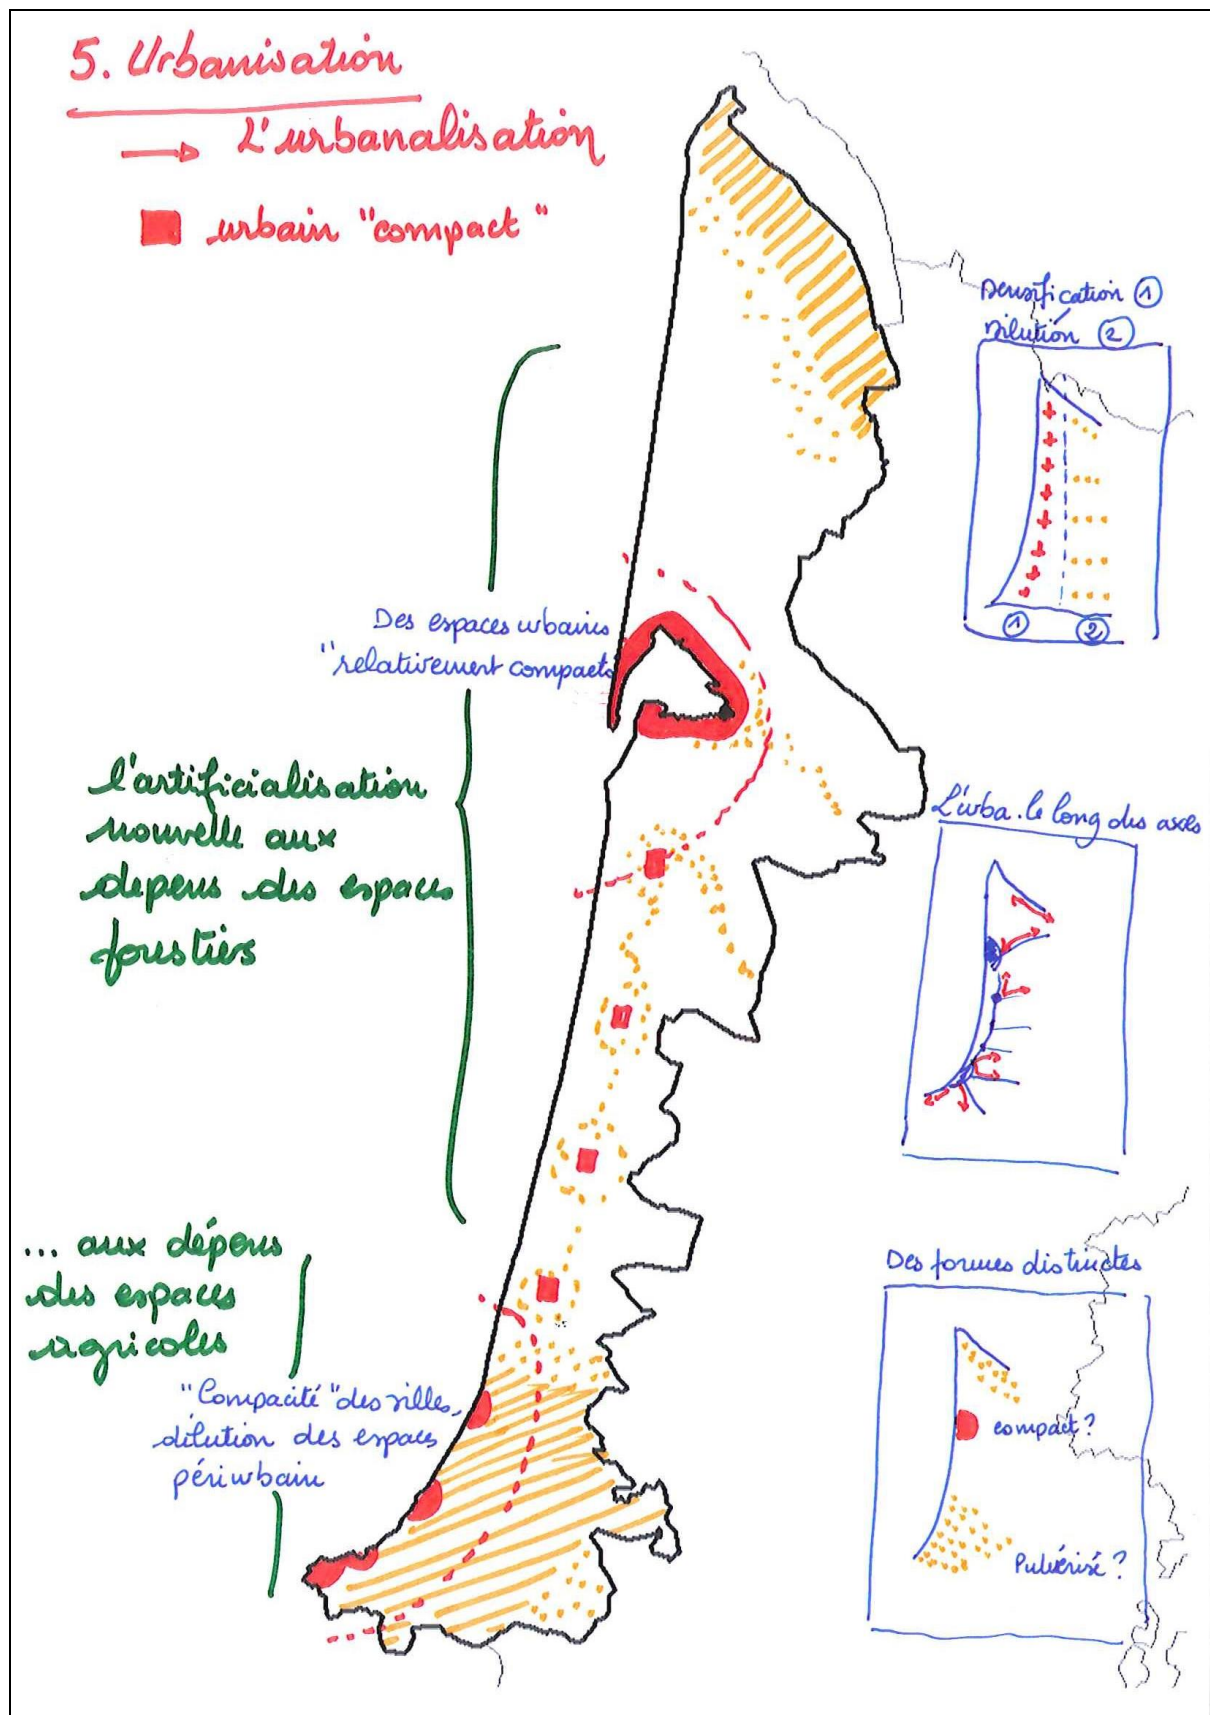 5. Urbanisation
→ L'urbanalisation
urbain "compact"
Densification ①
Dilution ②
① ②
Des espaces urbains
"relativement compacts
l'artificialisation
nouvelle aux
depens des espaces
forestiers
L'urba. le long des axes
... aux dépens
des espaces
agricoles
"Compacité" des villes,
dilution des espaces
périurbain
Des formes distinctes
compact?
Pulvérisé?